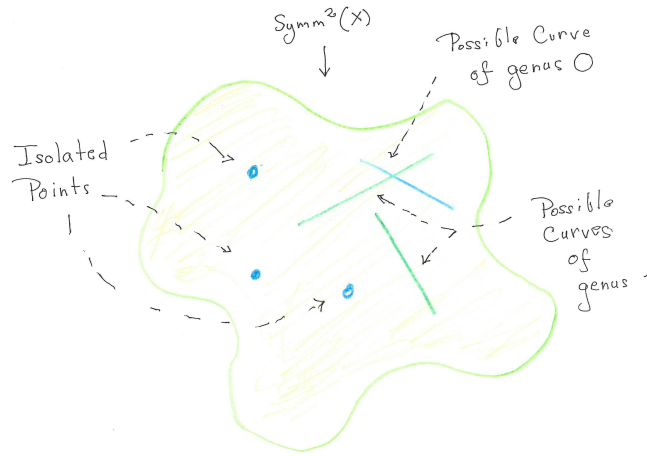 Symm²(X)
Possible Curve
of genus 0
Isolated
Points
Possible
Curves
of
genus